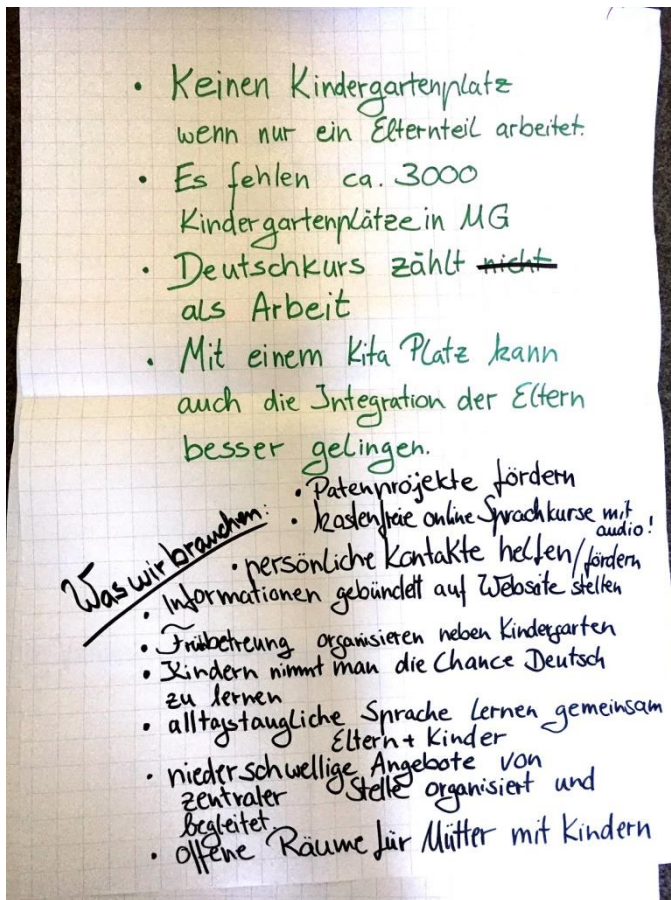 • Keinen Kindergartenplatz
wenn nur ein Elternteil arbeitet.
• Es fehlen ca. 3000
Kindergartenplätze in MG
• Deutschkurs zählt nicht
als Arbeit
• Mit einem Kita Platz kann
auch die Integration der Eltern
besser gelingen.
Was wir brauchen:
• Patenprojekte fördern
• kostenfreie online Sprachkurse mit
audio!
• persönliche Kontakte helfen/fördern
• Informationen gebündelt auf Website stellen
• Frühbetreung organisieren neben Kindergarten
• Kindern nimmt man die Chance Deutsch
zu lernen
• alltagstaugliche Sprache Lernen gemeinsam
Eltern + Kinder
• niederschwellige Angebote von
zentraler Stelle organisiert und
begleitet
• offene Räume für Mütter mit Kindern